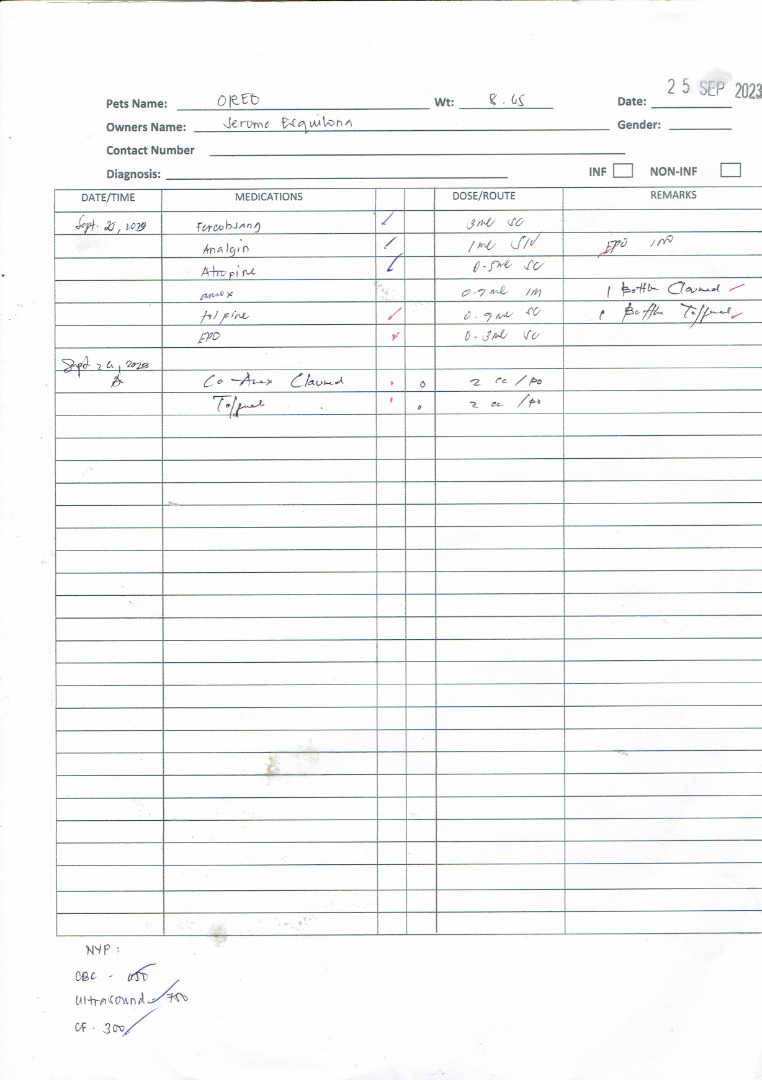 25 SEP 2023
Pets Name: OREO Wt: 8.65 Date:
Owners Name: Jerome Esquilona Gender:
Contact Number
Diagnosis: INF NON-INF
DATE/TIME MEDICATIONS DOSE/ROUTE REMARKS
Sept. 25, 2023 Fercobsang 3ml SC
Analgin 1ml EPO
Atropine 0.5ml SC
amox IM 1 Bottle Claumed
SC 1 Bottle
EPO 0.3ml SC
Sept 2023
Co-Amox Claumed 2 cc / PO
2 cc / PO
NYP :
CBC -
Ultrasound 750
CF - 300